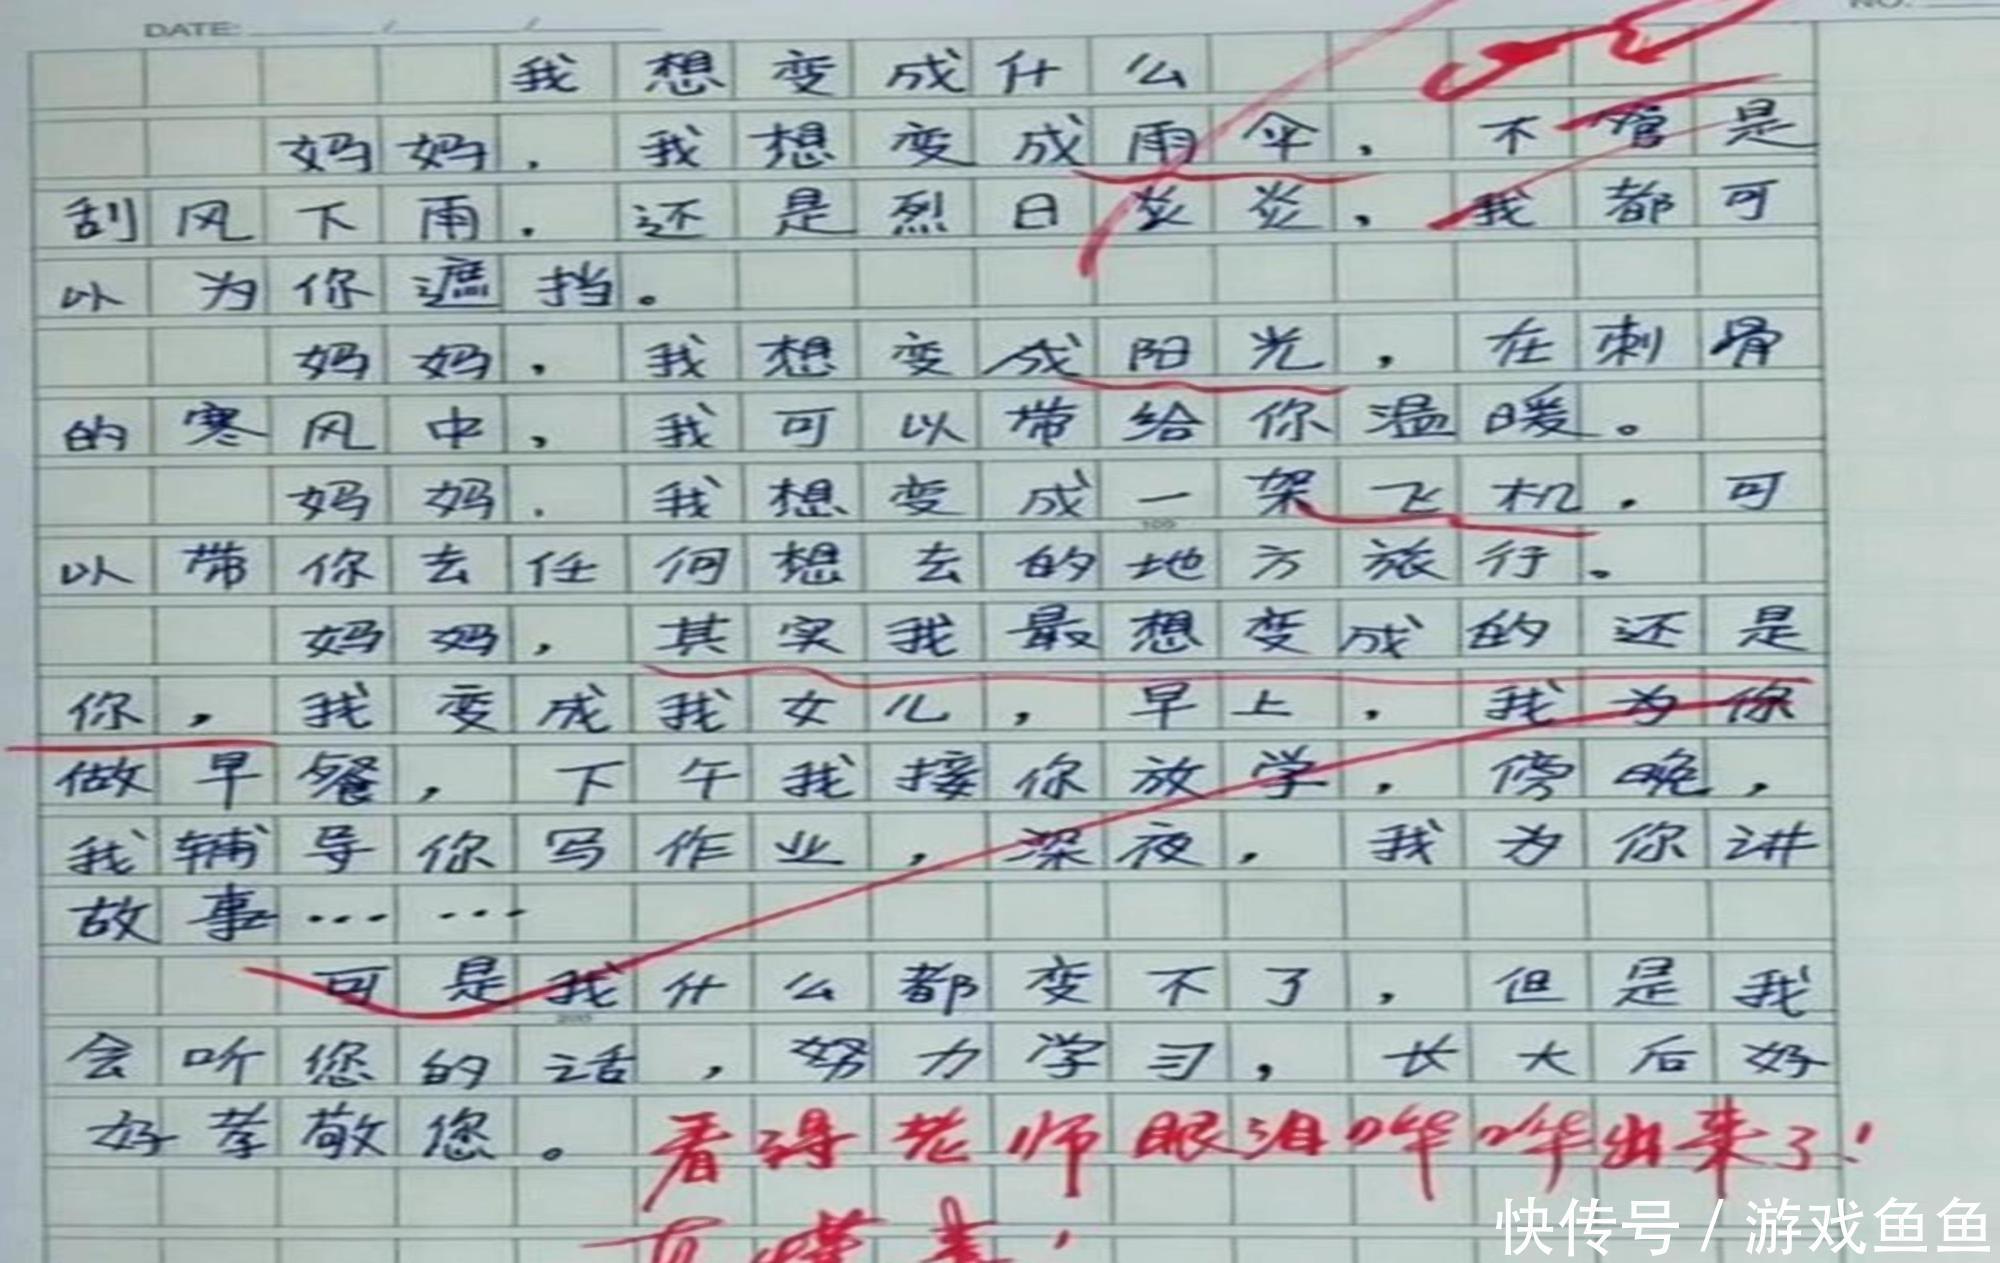 DATE: / /
NO.
我想变成什么
妈妈，我想变成雨伞，不管是
刮风下雨，还是烈日炎炎，我都可
以为你遮挡。
妈妈，我想变成阳光，在刺骨
的寒风中，我可以带给你温暖。
妈妈，我想变成一架飞机，可
100
以带你去任何想去的地方旅行。
妈妈，其实我最想变成的还是
你，我变成我女儿，早上，我为你
做早餐，下午我接你放学，傍晚，
我辅导你写作业，深夜，我为你讲
故事……
可是我什么都变不了，但是我
200
会听您的话，努力学习，长大后好
好孝敬您。
看得老师眼泪哗哗出来了！
快传号 / 游戏鱼鱼